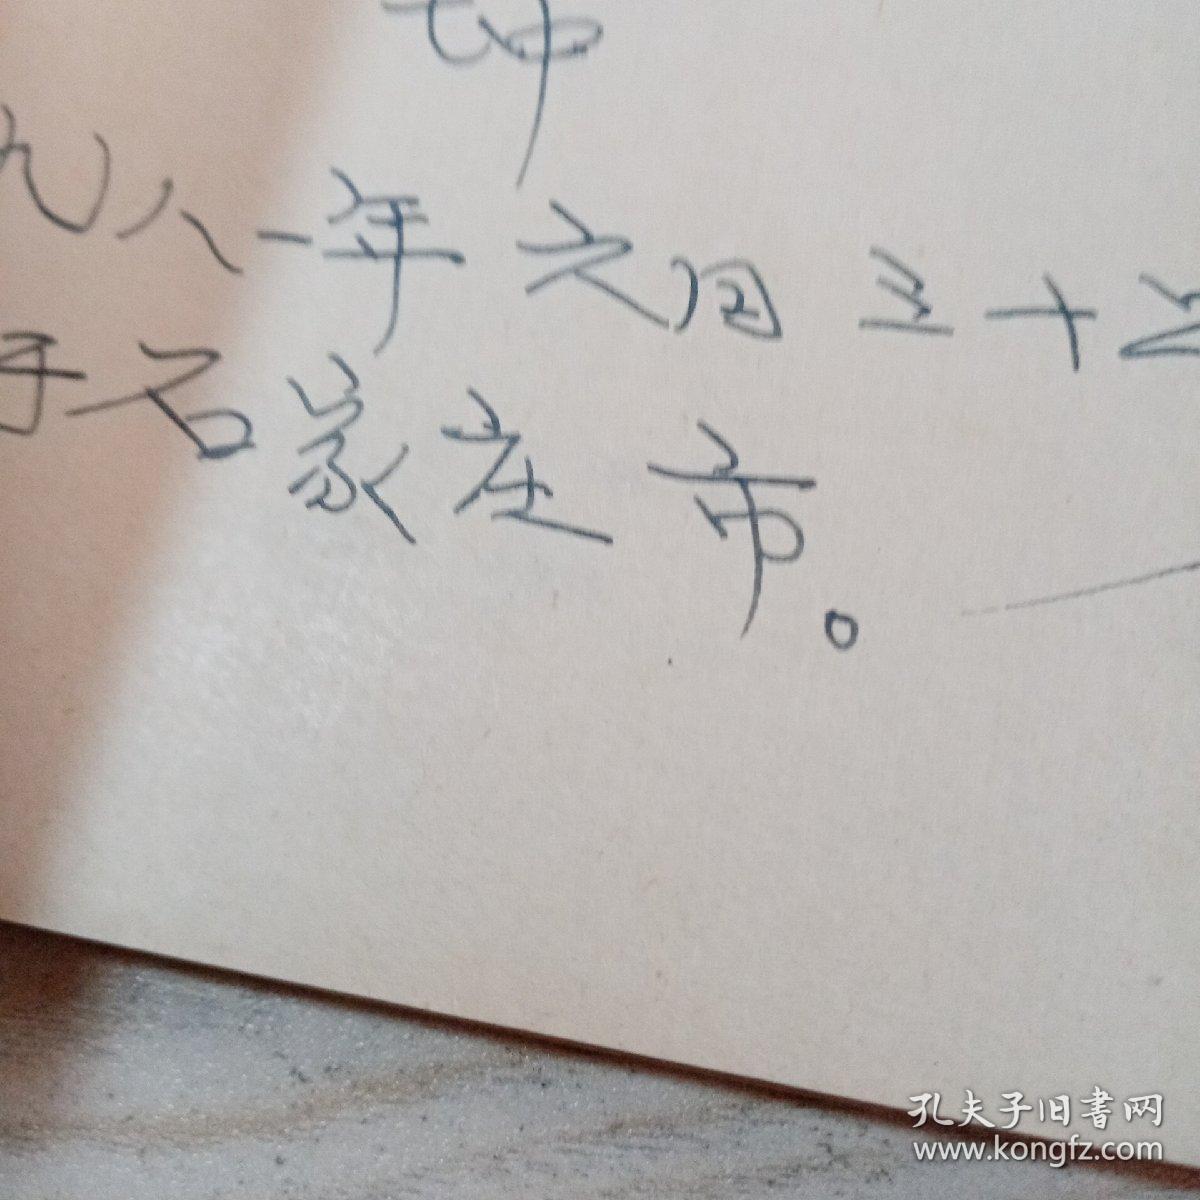 九八一年六月三十
于石家庄市。
孔夫子旧書网
www.kongfz.com